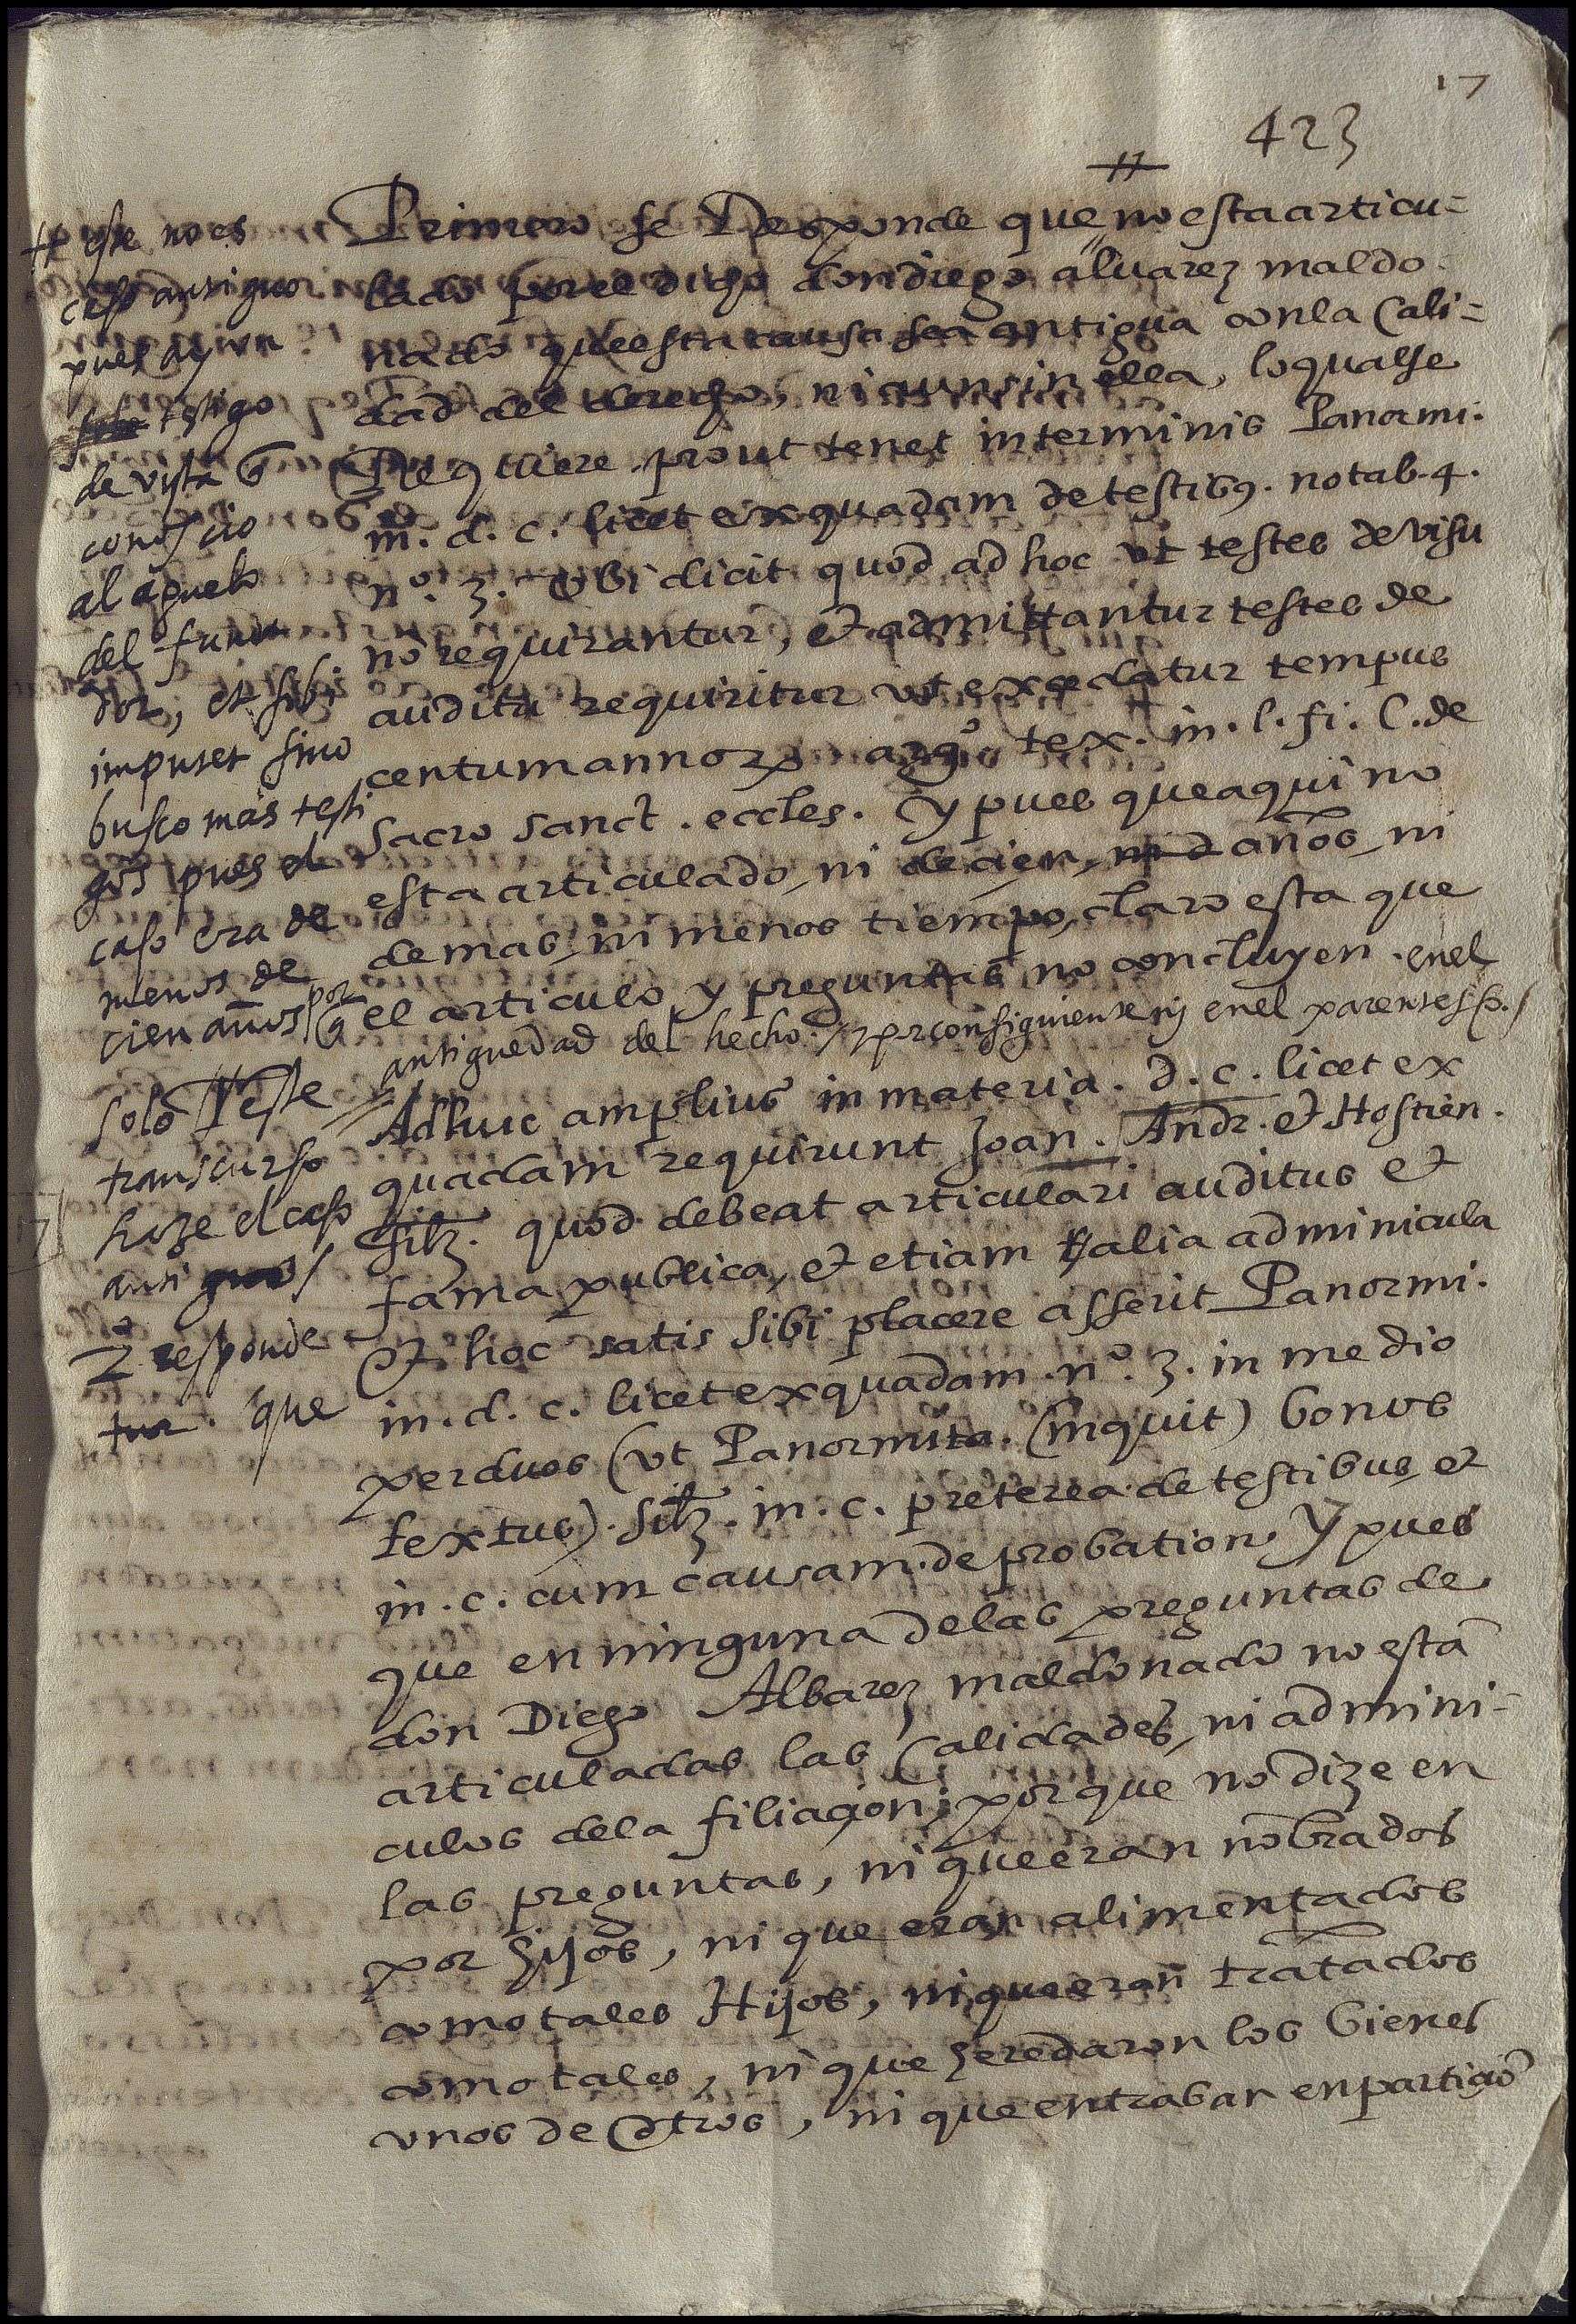 17
423
Primero se Responde que no esta articu-
lado por el dicho don diego aluarez maldo
nado que esta causa sea antigua con la Cali-
dad del derecho, ni aun sin ella, lo qual se
Requiere prout tenet in terminis Panormi.
in. d. c. licet ex quadam de testibꝰ. notab. 4.
nº. 3. Vbi dicit quod ad hoc vt testes de visu
nō requirantur, et admittantur testes de
auditu requiritur vt excedatur tempus
centum annorꝝ argº. tex. in. l. fi. C. de
sacro sanct. eccles. y pues que aqui no
esta articulado, ni de cien años, ni
de mas, ni menos tiempo, claro esta que
el articulo y preguntas no concluyen. en el
antiguedad del hecho / y por consiguiente nj en el parentesco. /
Adhuc amplius in materia. d. c. licet ex
quadam requirunt Joan. Andr. et Hostien.
quod debeat articulari auditus et
fama publica, et etiam alia adminicula
et hoc satis sibi placere asserit Panormi.
in. d. c. licet ex quadam. nº. 3. in medio
per duos (vt Panormita. (inquit) bonus
textus). in. c. preterea. de testibus, et
in. c. cum causam. de probation. Y pues
que en ninguna de las preguntas de
don Diego Albarez maldonado no esta
articuladas las Calidades, ni admini-
culos de la filiaçion; porque no dize en
las preguntas, ni que eran nōbrados
por hijos, ni que eran alimentados
como tales Hijos, ni que eran tratados
como tales, ni que heredaron los bienes
vnos de Otros, ni que entraban en partiçiō
este no es
caso antiguo
pues ay vn
testigo
de vista
conoscio
al aguelo
del funda
dor, et sibi
imputet si no
busco mas testi
gos pues el
caso era de
menos de
cien años / por
q̄
solo este
transcurso
haze el caso
antiguo /
2º responde
tur. que